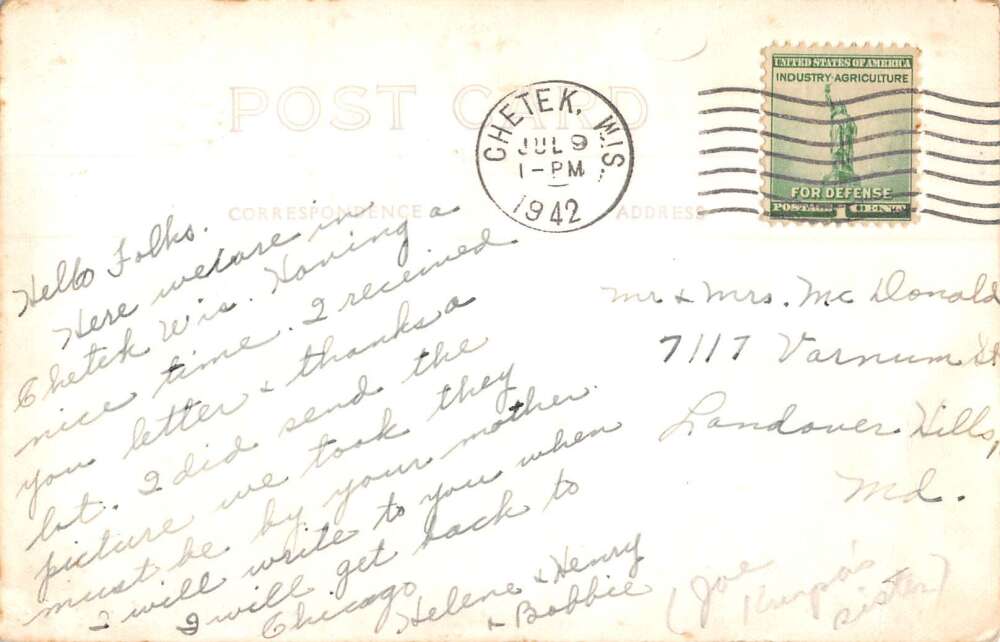 POST CARD
CORRESPONDENCE
ADDRESS
CHETEK, WIS.
JUL 9
1-PM
1942
UNITED STATES OF AMERICA
INDUSTRY AGRICULTURE
FOR DEFENSE
POSTAGE 1 CENT
Hello Folks.
Here we are in a
Chetek Wis. Having
nice time. I received
you letter & thanks a
lot. I did send the
picture we took they
must be by your mother
I will write to you when
I will get back to
Chicago
Helene & Henry
& Bobbie
Mr & Mrs. Mc Donald
7117 Varnum St
Landover Hills,
Md.
(Joe
Krupa's
sister)